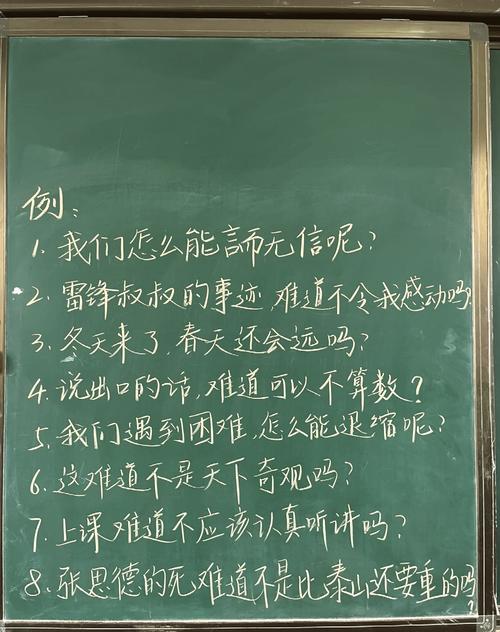 例：
1. 我们怎么能言而无信呢？
2. 雷锋叔叔的事迹，难道不令我感动吗？
3. 冬天来了，春天还会远吗？
4. 说出口的话，难道可以不算数？
5. 我们遇到困难，怎么能退缩呢？
6. 这难道不是天下奇观吗？
7. 上课难道不应该认真听讲吗？
8. 张思德的死难道不是比泰山还要重的吗？